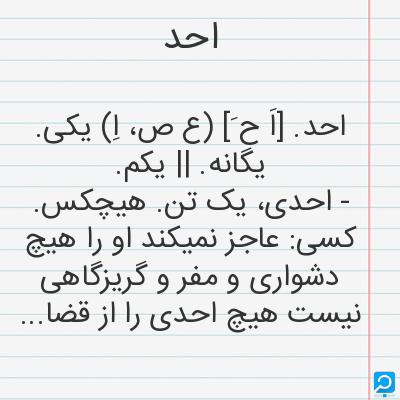 احد
احد. [اَ ح َ] (ع ص، اِ) یکی.
یگانه. || یکم.
- احدی، یک تن. هیچکس.
کسی: عاجز نمیکند او را هیچ
دشواری و مفر و گریزگاهی
نیست هیچ احدی را از قضا...